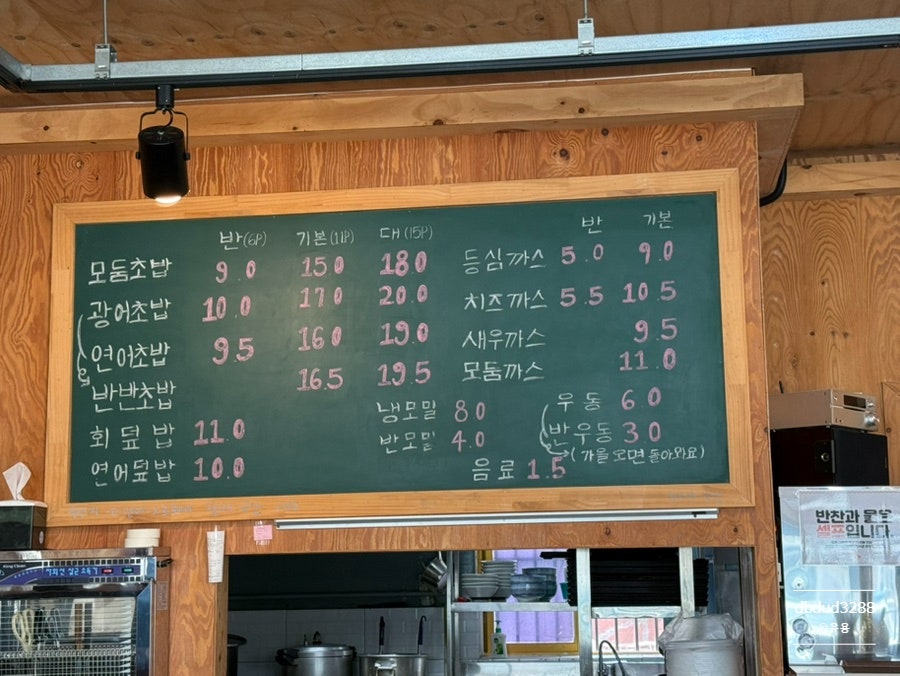 반(6P) 기본(11P) 대(15P)
모둠초밥 9.0 15.0 18.0
광어초밥 10.0 17.0 20.0
연어초밥 9.5 16.0 19.0
반반초밥 16.5 19.5
회덮밥 11.0
연어덮밥 10.0
냉모밀 8.0
반모밀 4.0
반 기본
등심까스 5.0 9.0
치즈까스 5.5 10.5
새우까스 9.5
모둠까스 11.0
우동 6.0
반우동 3.0
(가을 오면 돌아와요)
음료 1.5
반찬과 물은
셀프입니다.
dbdud3288